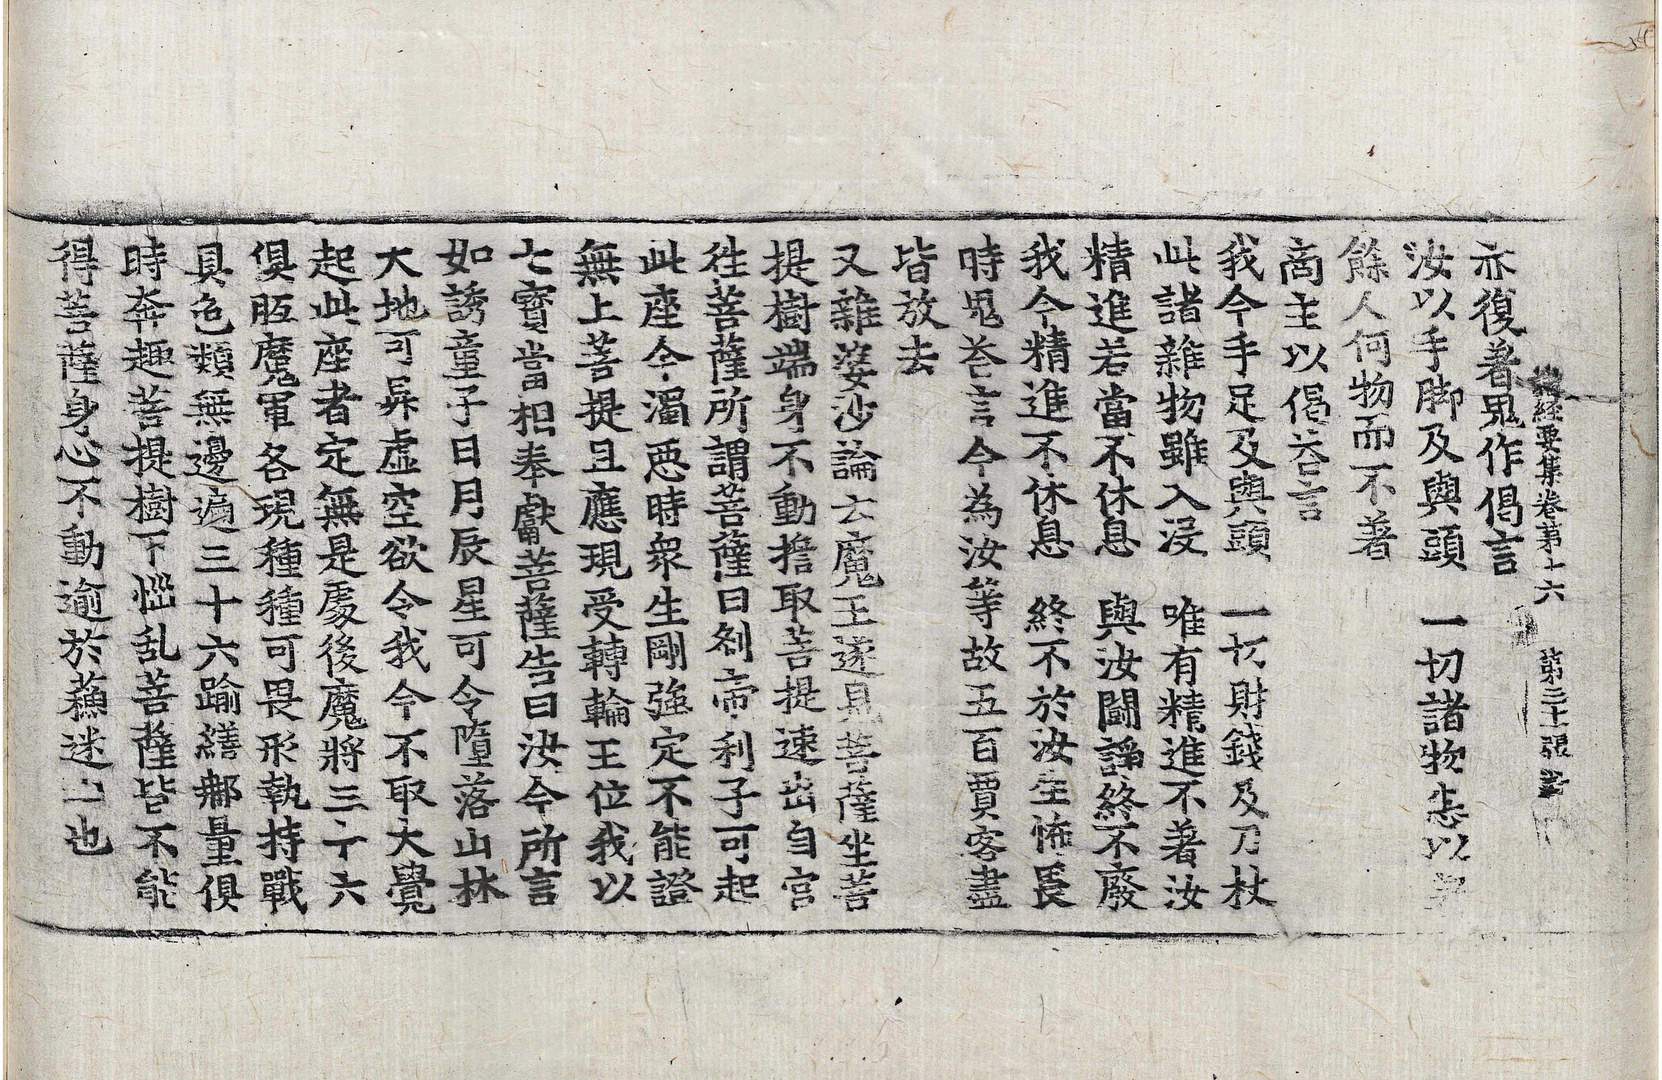 經要集卷第十六　第
亦復著鬼作偈言
汝以手脚及與頭　一切諸物悉以
餘人何物而不著
商主以偈荅言
我今手足及與頭　一切財錢及刀杖
此諸雜物雖入没　唯有精進不著汝
精進若當不休息　與汝鬪諍終不廢
我今精進不休息　終不於汝生怖畏
時鬼荅言今為汝等故五百賈客盡
皆放去
又雜婆沙論云魔王遂見菩薩坐菩
提樹端身不動擔取菩提速出自宫
徃菩薩所謂菩薩曰刹帝利子可起
此座今濁惡時衆生剛強定不能證
無上菩提且應現受轉輪王位我以
七寳當相奉獻菩薩告曰汝今所言
如誘童子日月辰星可令墮落山林
大地可昇虚空欲令我今不取大覺
起此座者定無是處後魔將三十六
俱胝魔軍各現種種可畏形執持戰
具色類無邊遍三十六踰繕那量俱
時奔趣菩提樹下惱乱菩薩皆不能
得菩薩身心不動逾於蘓迷盧也